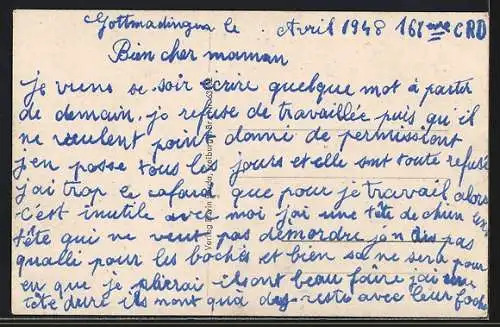 Gottmadingen le Avril 1948 161eme CRD
Bien cher maman
Je viens se soir écrire quelque mot à partir
de demain, je refuse de travaillée puis qu'il
ne veulent point donné de permissiont
j'en posse tous les jours et elle sont toute refusé
j'ai trop le cafard que pour je travail alors
c'est inutile avec moi j'ai une tête de chien
tête qui ne veut pas démordre j'en dis pas
quallé pour les boches et bien sa ne sera pour
en que je plierai ils ont beau faire j'ai une
tête dure ils mont quà des reste avec leur